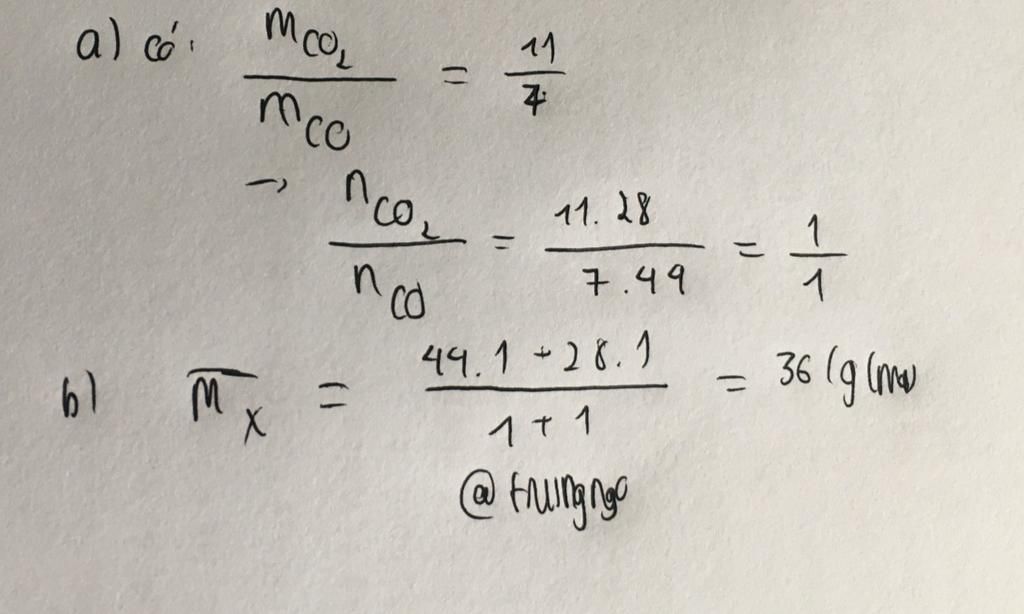 a) có: m_CO₂ / m_CO = 11 / 7
→ n_CO₂ / n_CO = 11.28 / 7.44 = 1 / 1
b) M̅_X = (44.1 + 28.1) / (1 + 1) = 36 (g/mol
@trungngo